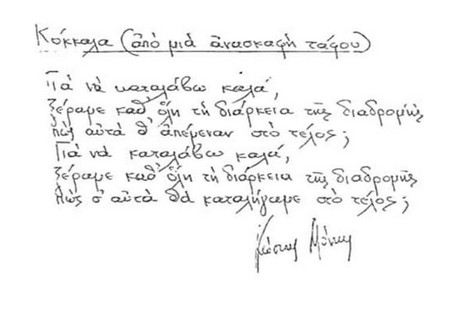 Κόκκαλα (ἀπό μιά ἀνασκαφή τάφου)
Γιά νά καταλάβω καλά,
ξέραμε καθ' ὅλη τή διάρκεια τῆς διαδρομῆς
πώς αὐτά θ' ἀπέμεναν στό τέλος;
Γιά νά καταλάβω καλά,
ξέραμε καθ' ὅλη τή διάρκεια τῆς διαδρομῆς
πώς σ' αὐτά θά καταλήγαμε στό τέλος;